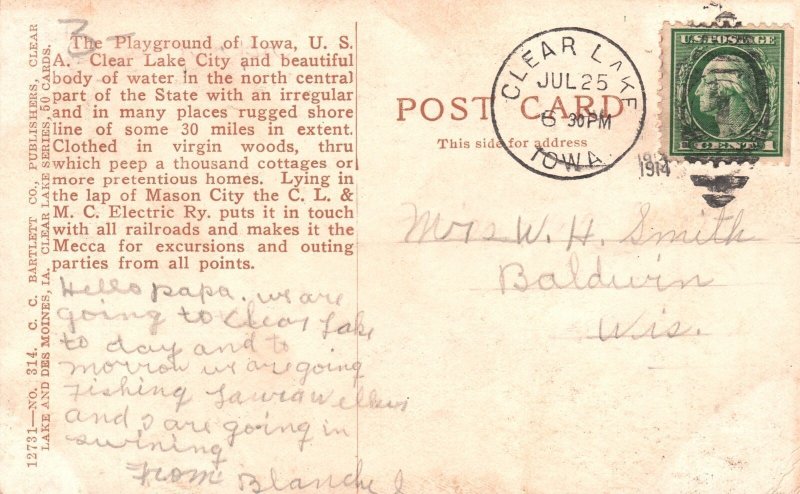 3-
The Playground of Iowa, U. S.
A. Clear Lake City and beautiful
body of water in the north central
part of the State with an irregular
and in many places rugged shore
line of some 30 miles in extent.
Clothed in virgin woods, thru
which peep a thousand cottages or
more pretentious homes. Lying in
the lap of Mason City the C. L. &
M. C. Electric Ry. puts it in touch
with all railroads and makes it the
Mecca for excursions and outing
parties from all points.
Hello papa. we are
going to Clear Lake
to day and to
morrow we are going
Fishing Laura
and I are going in
swining
From Blanche
12731—NO. 314. C. C. BARTLETT CO., PUBLISHERS, CLEAR
LAKE AND DES MOINES, IA. CLEAR LAKE SERIES, 50 CARDS.
POST CARD
This side for address
CLEAR LAKE
JUL 25
6 30PM
1914
IOWA
U.S. POSTAGE
1 CENT 1
Mrs W. H. Smith
Baldwin
Wis.